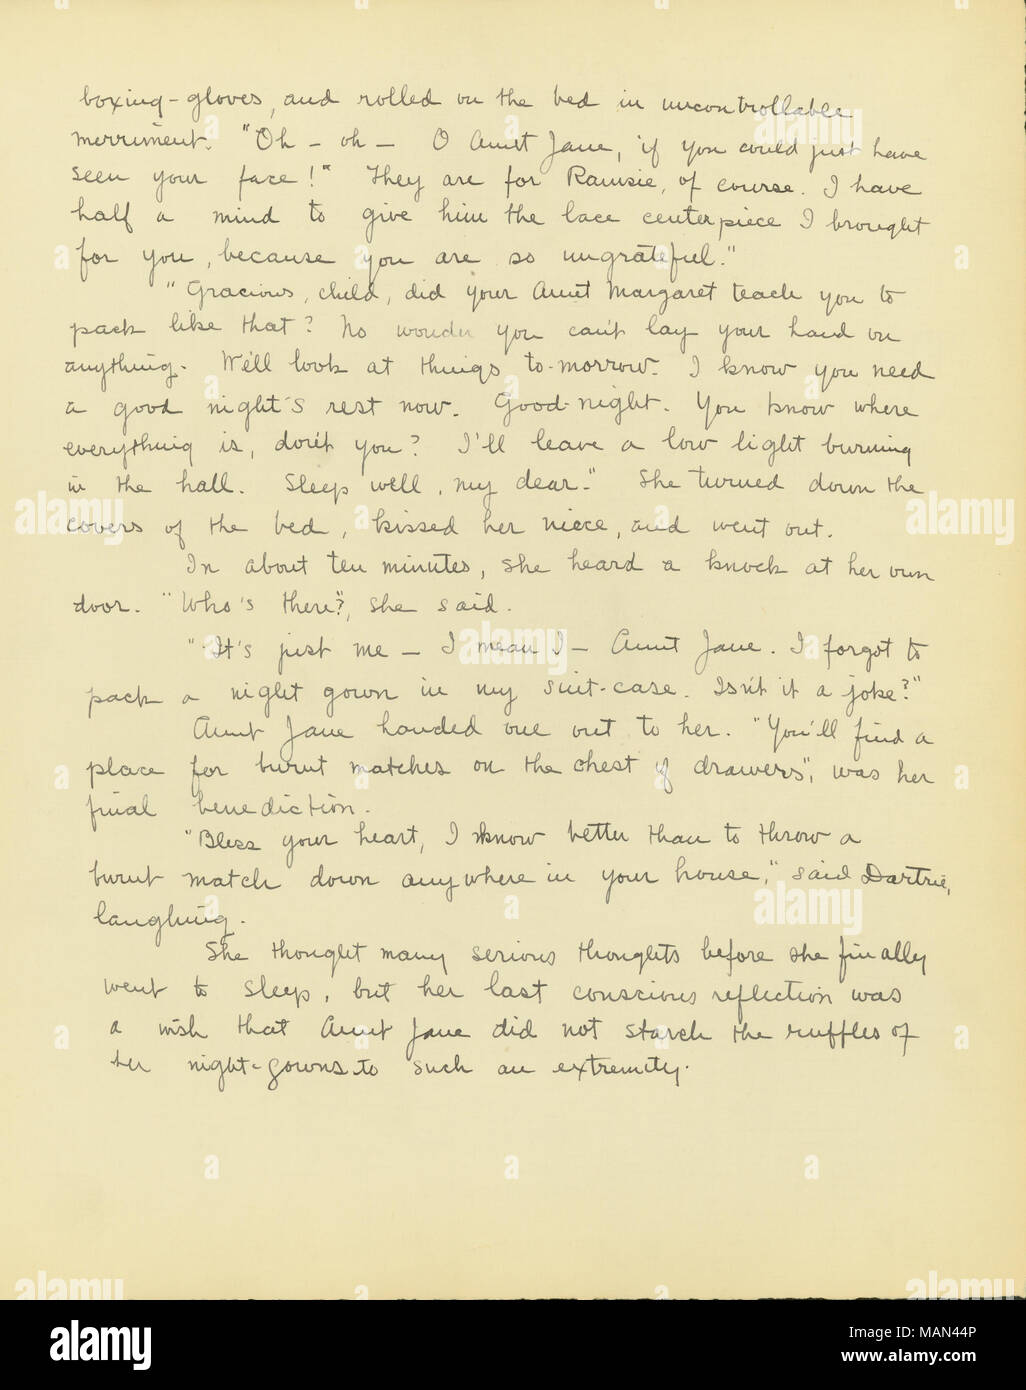 boxing-gloves, and rolled on the bed in uncontrollable
merriment. "Oh – oh – O Aunt Jane, if you could just have
seen your face!" They are for Ramsie, of course. I have
half a mind to give him the lace centerpiece I brought
for you, because you are so ungrateful."
"Gracious, child, did your Aunt Margaret teach you to
pack like that? No wonder you can't lay your hand on
anything. We'll look at things to-morrow. I know you need
a good night's rest now. Good-night. You know where
everything is, don't you? I'll leave a low light burning
in the hall. Sleep well, my dear." She turned down the
covers of the bed, kissed her niece, and went out.
In about ten minutes, she heard a knock at her own
door. "Who's there?", she said.
"It's just me – I mean I – Aunt Jane. I forgot to
pack a night gown in my suit-case. Isn't it a joke?"
Aunt Jane handed one out to her. "You'll find a
place for burnt matches on the chest of drawers", was her
final benediction.
"Bless your heart, I know better than to throw a
burnt match down anywhere in your house," said Dartrie,
laughing.
She thought many serious thoughts before she finally
went to sleep, but her last conscious reflection was
a wish that Aunt Jane did not starch the ruffles of
her night-gowns to such an extremity.
alamy
Image ID: MAN44P
www.alamy.com